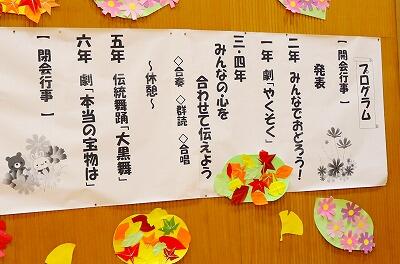 プログラム
【開会行事】
発表
二年 みんなでおどろう!
一年 劇「やくそく」
三・四年
みんなの心を
合わせて伝えよう
◇合奏 ◇群読 ◇合唱
~休憩~
五年 伝統舞踊「大黒舞」
六年 劇「本当の宝物は」
【閉会行事】